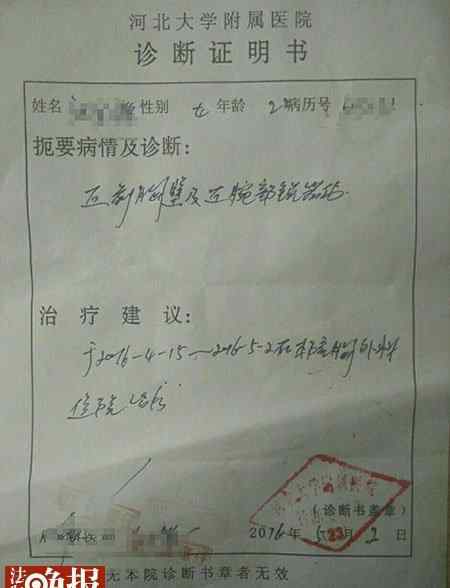 河北大学附属医院
诊断证明书
姓名 性别 女 年龄 2 病历号
扼要病情及诊断:
右前胸壁及左腕部锐器伤.
治疗建议:
于2016-4-15~2016-5-2在本院胸外科
住院治疗
医
(诊断书盖章)
2016年5月2日
无本院诊断书章者无效
法 晚报